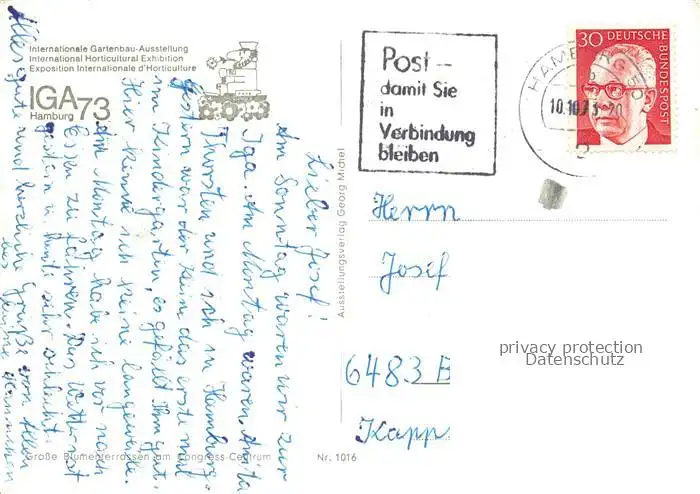 Internationale Gartenbau-Ausstellung
International Horticultural Exhibition
Exposition Internationale d'Horticulture
IGA73
Hamburg
Lieber Josef!
Am Sonntag waren wir zur
Iga. Am Montag waren Anita
Thorsten und ich in Hamburg.
Gestern war der keine das erste mal
im Kindergarten, es gefällt Ihm gut.
Hier kenne ich keine langeweile.
Am Montag habe ich vor nach
Essen zu fahren. Das Wetter ist
gestern u. heute sehr schlecht.
Alles gute und herzliche Grüße von allen
Große Blumenterrassen am Congress-Centrum
Nr. 1016
Ausstellungsverlag Georg Michel
Post –
damit Sie
in
Verbindung
bleiben
HAMBURG
10.10.73-20
30 DEUTSCHE
BUNDESPOST
Herrn
Josef
6483 B
Kapp
privacy protection
Datenschutz